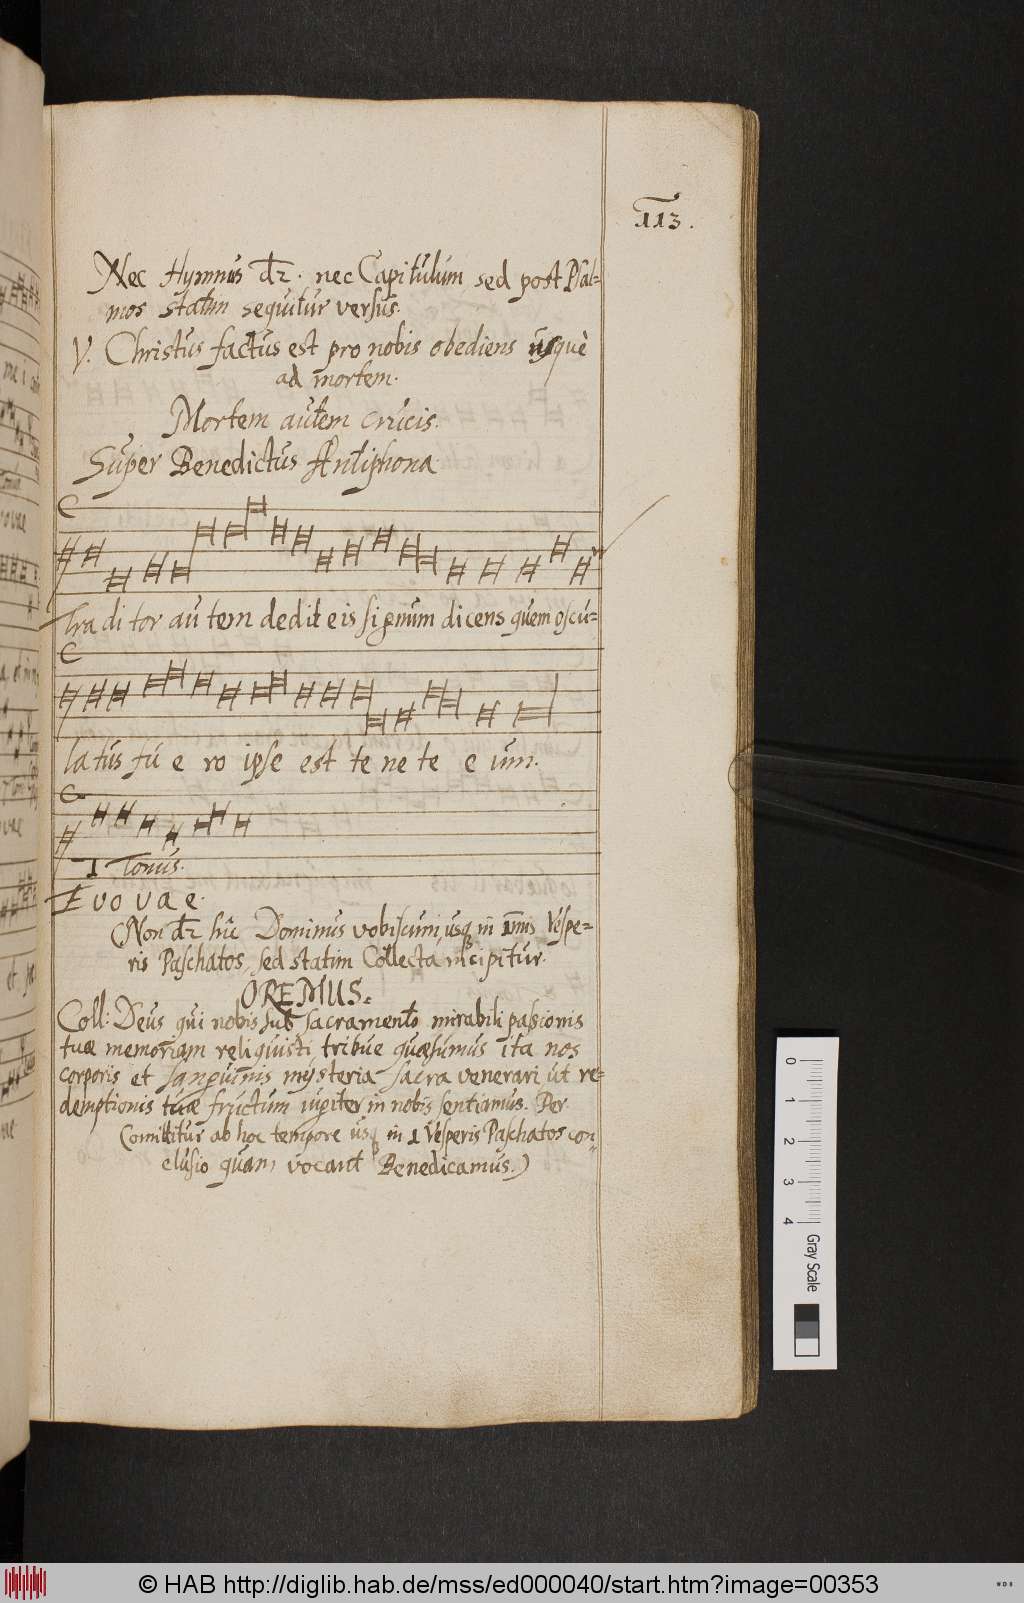 113.
Nec Hymnus dr. nec Capitulum sed post Psal=
mos statim sequitur versus.
V. Christus factus est pro nobis obediens usquè
ad mortem.
Mortem autem crucis.
Super Benedictus Antiphona
Tra di tor au tem dedit eis signum dicens quem oscu=
latus fu e ro ipse est te ne te e um.
I Tonus.
E vo v a e.
(Non dr hîc Dominus vobiscum, usq in Vespe=
ris Paschatos, sed statim Collecta incipitur.
OREMUS.
Coll: Deus qui nobis sub sacramento mirabili passionis
tuæ memoriam reliquisti, tribue quæsumus ita nos
corporis et sanguinis mysteria sacra venerari, ut re=
demptionis tuæ fructum iugiter in nobis sentiamus. Per.
Comittitur ab hoc tempore usq in 1 Vesperis Paschatos con=
clusio quam vocant Benedicamus.)
0
1
2
3
4
Gray Scale
© HAB http://diglib.hab.de/mss/ed000040/start.htm?image=00353